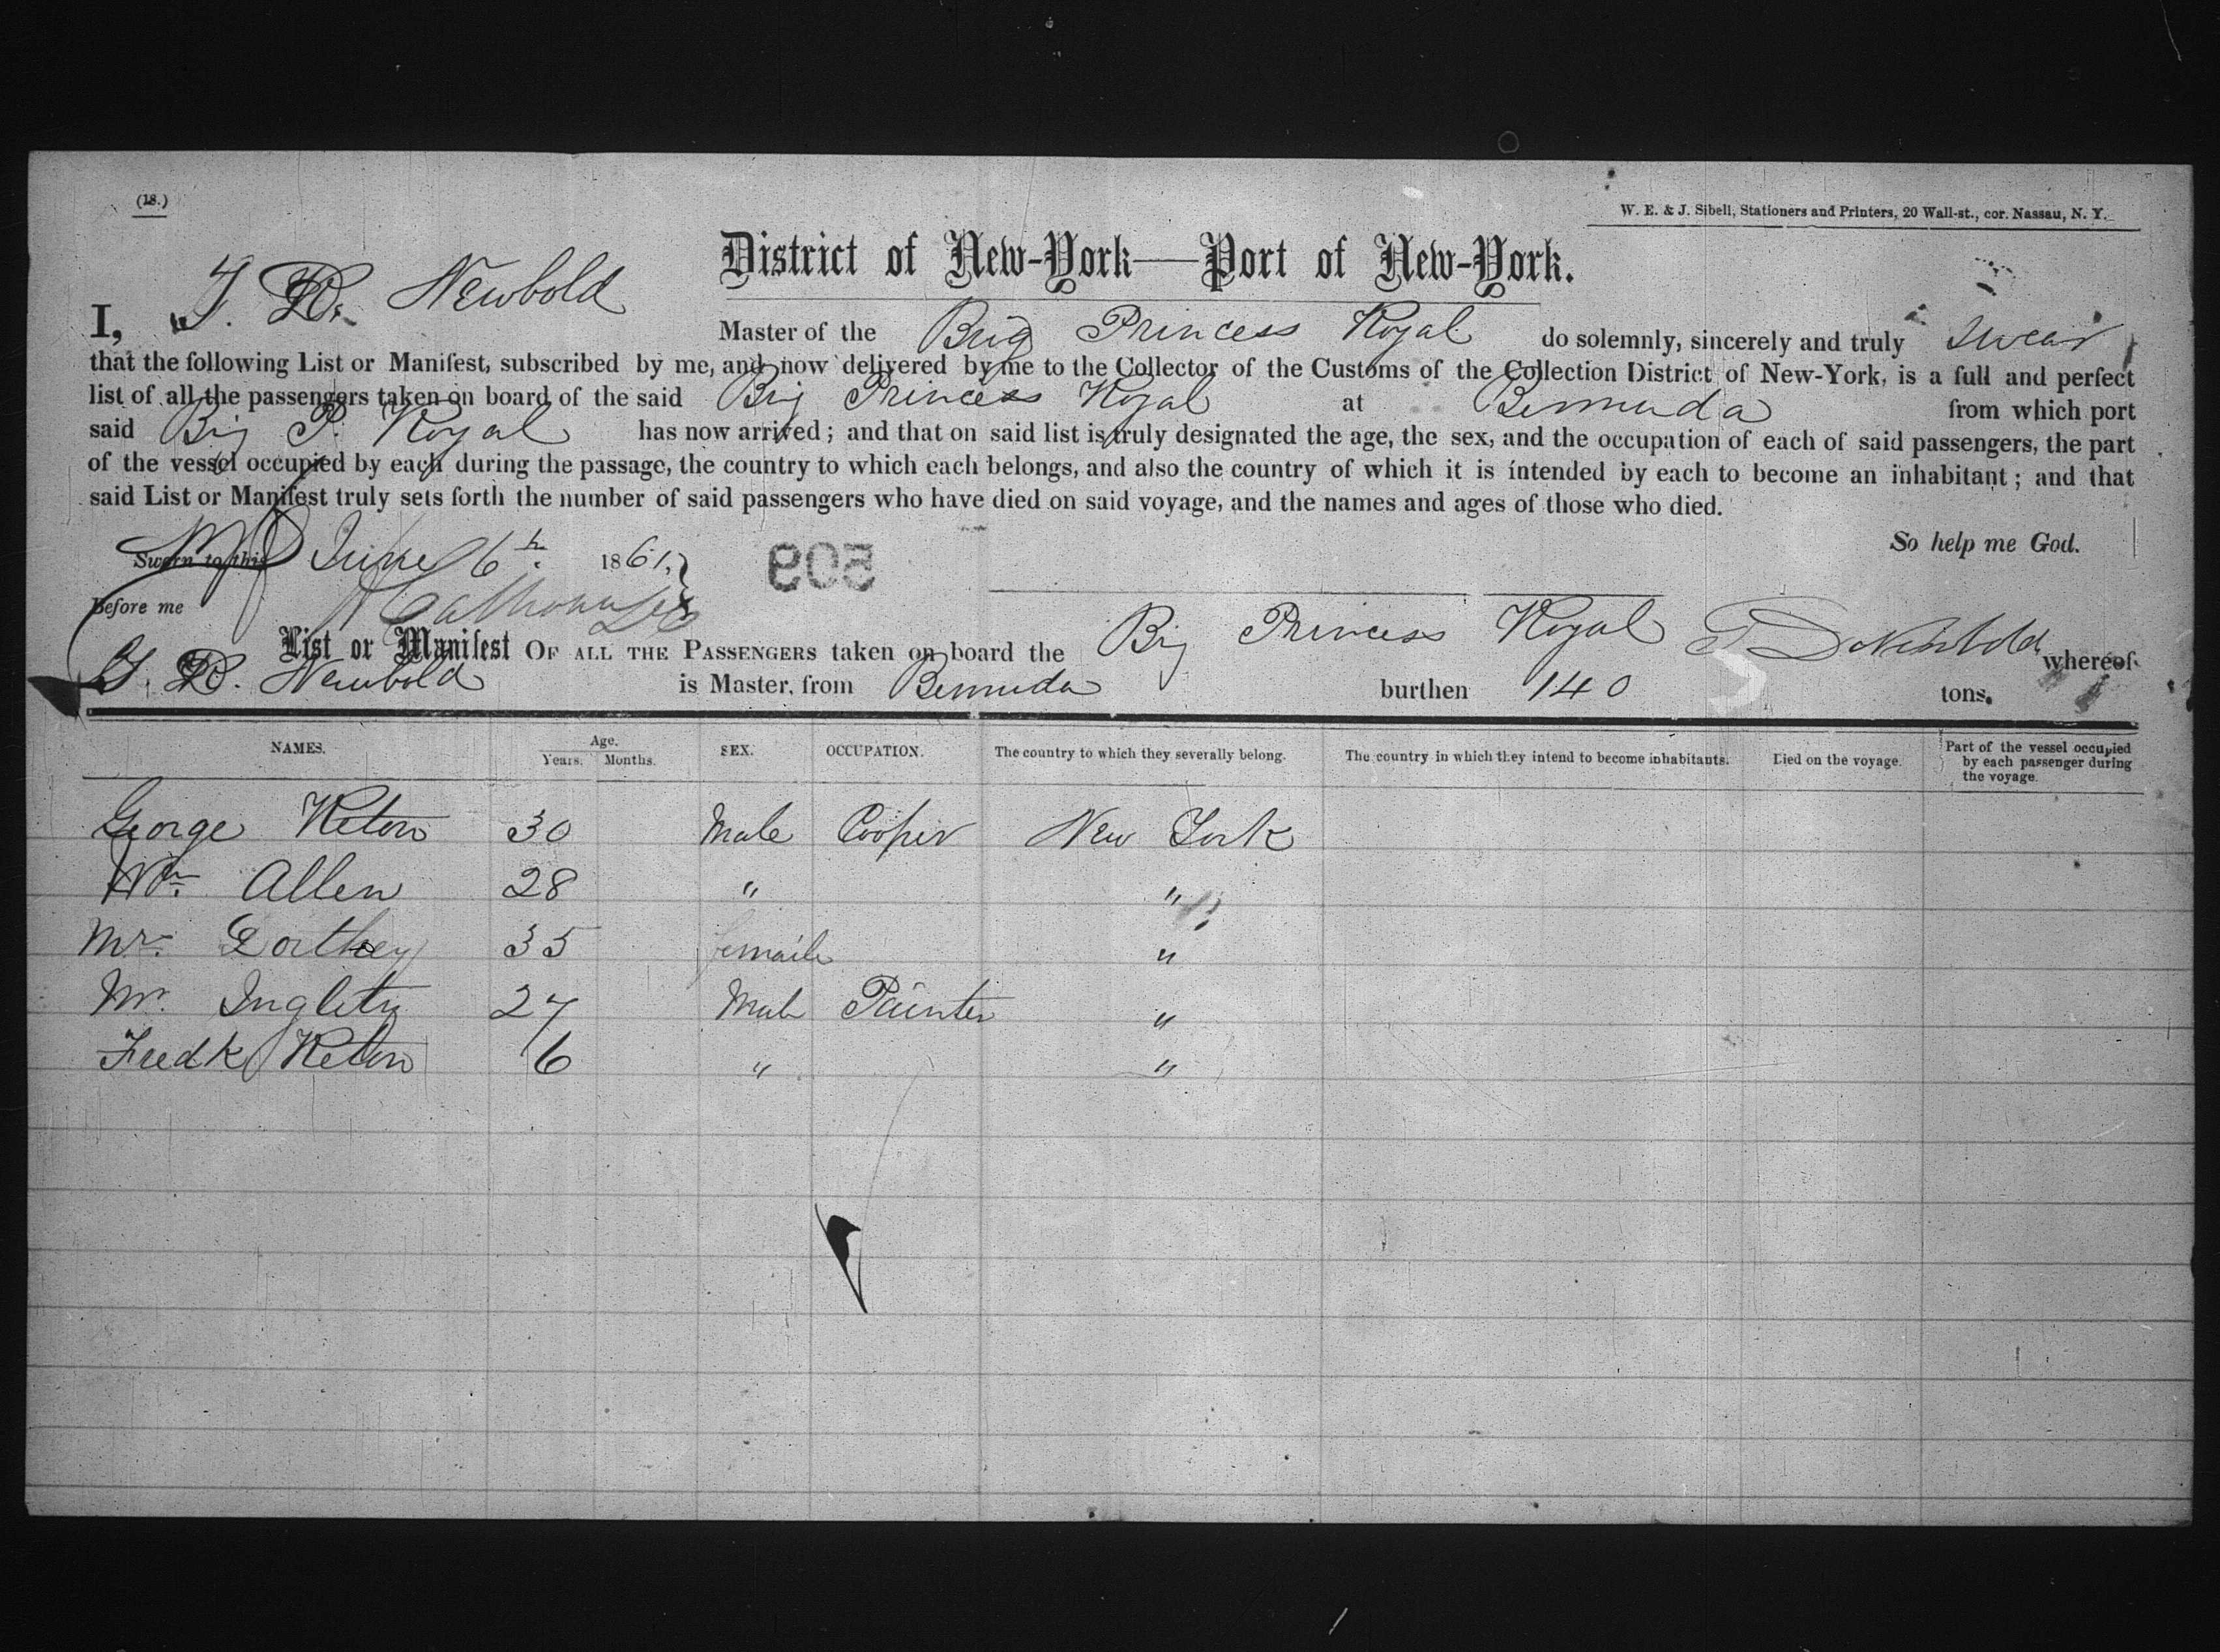 (18.)
W. E. & J. Sibell, Stationers and Printers, 20 Wall-st., cor. Nassau, N. Y.
District of New-York—Port of New-York.
I, T. D. Newbold Master of the Brig Princess Royal do solemnly, sincerely and truly swear
that the following List or Manifest, subscribed by me, and now delivered by me to the Collector of the Customs of the Collection District of New-York, is a full and perfect
list of all the passengers taken on board of the said Brig Princess Royal at Bermuda from which port
said Brig P. Royal has now arrived; and that on said list is truly designated the age, the sex, and the occupation of each of said passengers, the part
of the vessel occupied by each during the passage, the country to which each belongs, and also the country of which it is intended by each to become an inhabitant; and that
said List or Manifest truly sets forth the number of said passengers who have died on said voyage, and the names and ages of those who died.
So help me God.
Sworn to this June 6th 1861,
509
Before me
T D Newbold
List or Manifest OF ALL THE PASSENGERS taken on board the Brig Princess Royal whereof
T. D. Newbold is Master, from Bermuda burthen 140 tons.
NAMES. Age. Years. Months. SEX. OCCUPATION. The country to which they severally belong. The country in which they intend to become inhabitants. Died on the voyage. Part of the vessel occupied by each passenger during the voyage.
George Keton 30 Male Cooper New York
Wm. Allen 28 " "
Mrs. 35 female "
Mr. 27 Male Painter "
Fredk Keton 6 " "